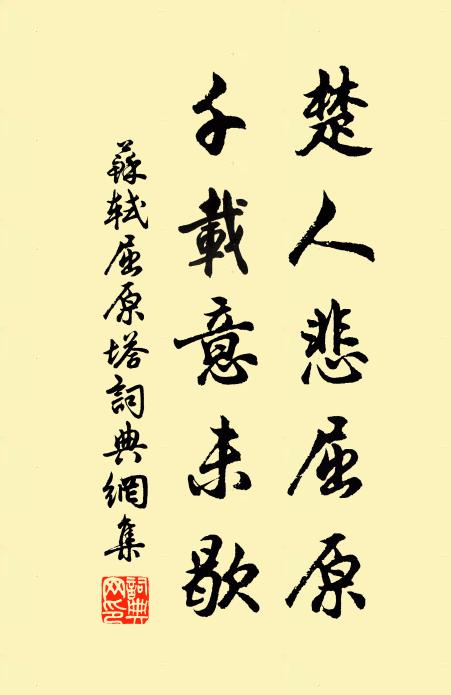 楚人悲屈原
千載意未歇
蘇軾屈原塔詞典網集
詞典網印